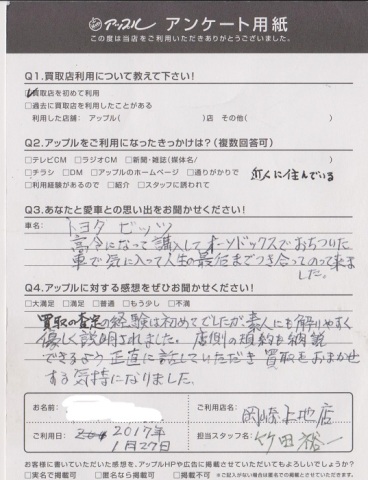 アップル アンケート用紙
この度は当店をご利用いただきありがとうございました。
Q1.買取店利用について教えて下さい!
買取店を初めて利用
□過去に買取店を利用したことがある
利用した店舗: アップル( )店 その他( )
Q2.アップルをご利用になったきっかけは?(複数回答可)
□テレビCM □ラジオCM □新聞・雑誌(媒体名/ )
□チラシ □DM □アップルのホームページ □通りがかりで 近くに住んでいる
□利用経験があるので □紹介 □スタッフに誘われて
Q3.あなたと愛車との思い出をお聞かせください!
車名: トヨタ ビッツ
高令になって購入してオーソドックスでおちついた
車で気に入って人生の最后までつき合ってのって来ま
した。
Q4.アップルに対する感想をぜひお聞かせください!
□大満足 □満足 □普通 □もう少し □不満
買取の査定の経験は初めてでしたが素人にも解りやすく
優しく説明されました。店側の 納得
できるよう正直に話していただき買取をおまかせ
する気持になりました。
お名前:
ご利用店名: 岡崎上地店
ご利用日: 2017年
1月27日
担当スタッフ名: 竹田裕一
お客様に書いていただいた感想を、アップルHPや広告に掲載させていただいてもよろしいでしょうか?
□実名で掲載可 □匿名なら掲載可 □掲載不可 ※ご記入がない場合は匿名での掲載とさせていただきます。